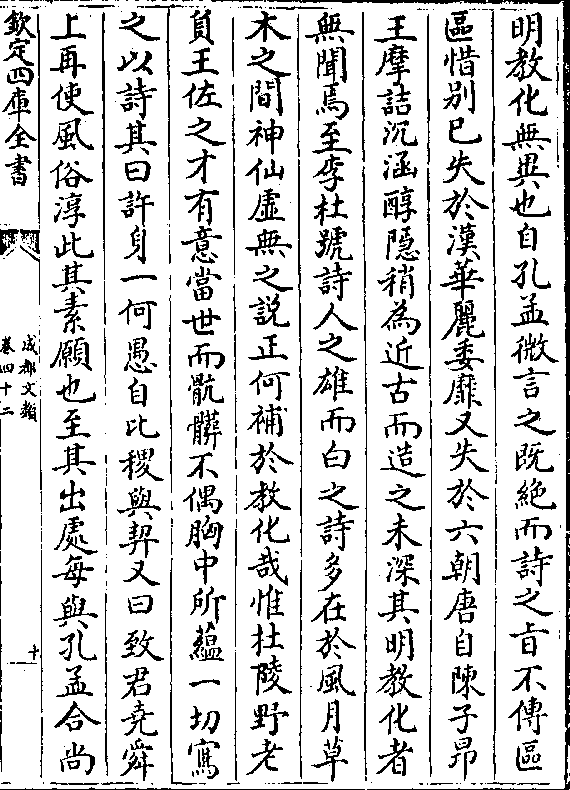 明教化無異也自孔孟微言之既絶而詩之㫖不傳區
區惜别已失於漢華麗委靡又失於六朝唐自陳子昂
王摩詰沉涵醇隱稍為近古而造之未深其明教化者
無聞焉至李杜號詩人之雄而白之詩多在於風月草
木之間神仙虚無之説正何補於教化哉惟杜陵野老
負王佐之才有意當世而骯髒不偶胸中所蘊一切寫
之以詩其曰許身一何愚自比稷與契又曰致君堯舜
上再使風俗淳此其素願也至其出處每與孔孟合尚
欽定四庫全書
成都文類
卷四十二
十